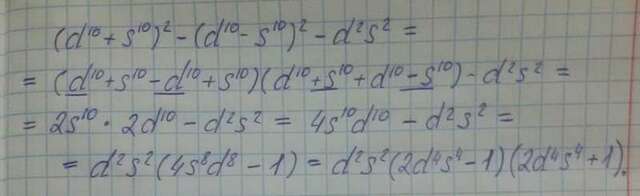 (d¹⁰+s¹⁰)²-(d¹⁰-s¹⁰)²-d²s²=
=(d¹⁰+s¹⁰-d¹⁰+s¹⁰)(d¹⁰+s¹⁰+d¹⁰-s¹⁰)-d²s²=
=2s¹⁰·2d¹⁰-d²s²=4s¹⁰d¹⁰-d²s²=
=d²s²(4s⁸d⁸-1)=d²s²(2d⁴s⁴-1)(2d⁴s⁴+1).